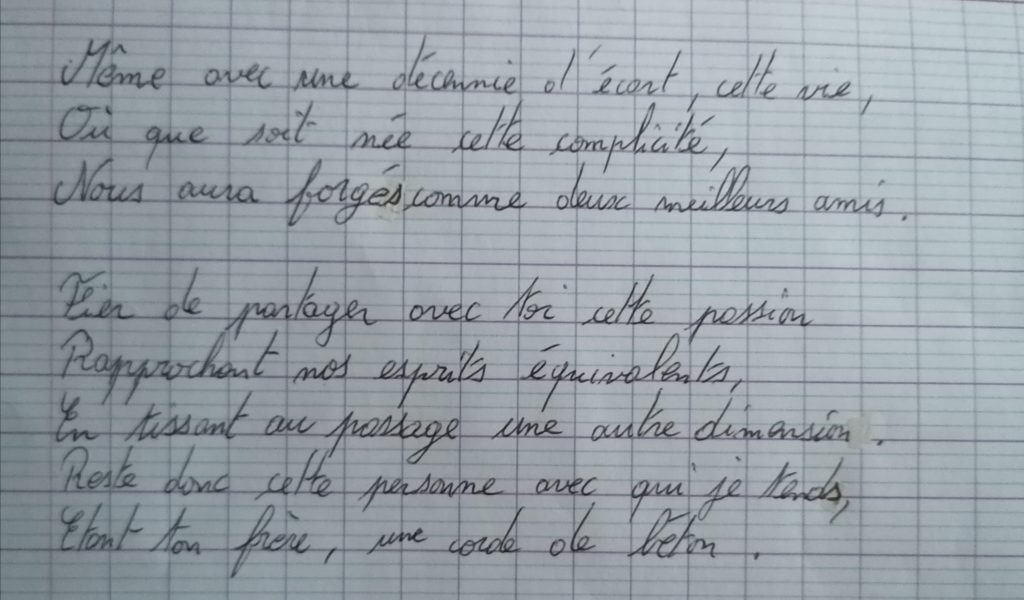 Même avec une décennie d'écart, cette vie,
Où que soit née cette complicité,
Nous aura forgés comme deux meilleurs amis.
Fier de partager avec toi cette passion
Rapprochant nos esprits équivalents,
En tissant au passage une autre dimension.
Reste donc cette personne avec qui je tends,
Etant ton frère, une corde de béton.